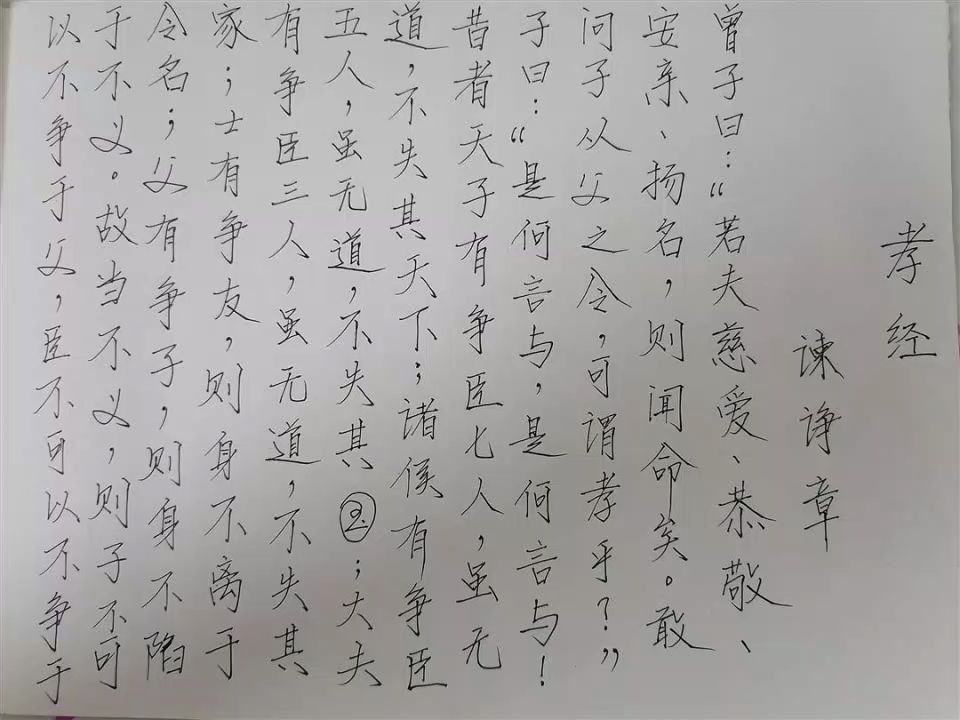 孝经
谏诤章
曾子曰：“若夫慈爱、恭敬、
安亲、扬名，则闻命矣。敢
问子从父之令，可谓孝乎？”
子曰：“是何言与，是何言与！
昔者天子有争臣七人，虽无
道，不失其天下；诸侯有争臣
五人，虽无道，不失其国；大夫
有争臣三人，虽无道，不失其
家；士有争友，则身不离于
令名；父有争子，则身不陷
于不义。故当不义，则子不可
以不争于父，臣不可以不争于